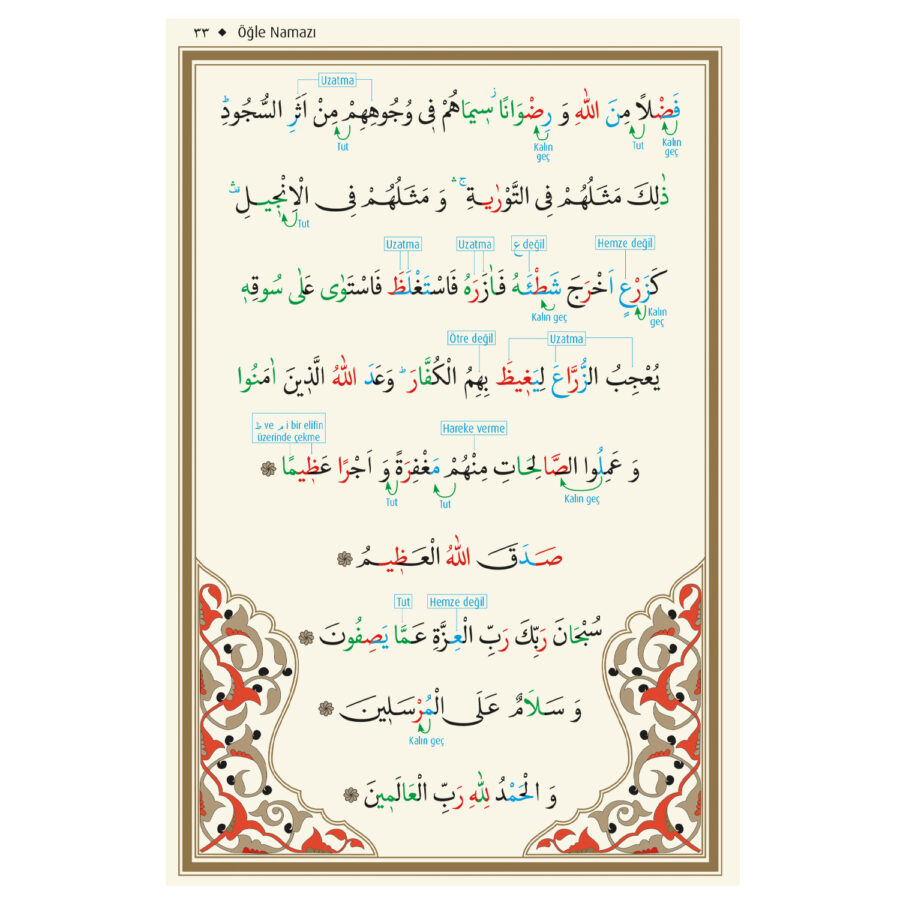 ٣٣ ◆ Öğle Namazı
Uzatma
فَضْلًا مِنَ اللّٰهِ وَ رِضْوَانًا سٖيمَاهُمْ فٖى وُجُوهِهِمْ مِنْ اَثَرِ السُّجُودِ ط
Kalın geç Tut Kalın geç Tut
ذٰلِكَ مَثَلُهُمْ فِى التَّوْرٰيةِ ج وَ مَثَلُهُمْ فِى الْاِنْجٖيلِ
Tut
Hemze değil ع değil Uzatma Uzatma
كَزَرْعٍ اَخْرَجَ شَطْئَهُ فَاٰزَرَهُ فَاسْتَغْلَظَ فَاسْتَوٰى عَلٰى سُوقِهٖ
Kalın geç Kalın geç
Uzatma Ötre değil
يُعْجِبُ الزُّرَّاعَ لِيَغٖيظَ بِهِمُ الْكُفَّارَ ط وَعَدَ اللّٰهُ الَّذٖينَ اٰمَنُوا
Hareke verme ظ ve م i bir elifin üzerinde çekme
وَ عَمِلُوا الصَّالِحَاتِ مِنْهُمْ مَغْفِرَةً وَ اَجْرًا عَظٖيمًا
Kalın geç Tut Tut
صَدَقَ اللّٰهُ الْعَظٖيمُ
Hemze değil Tut
سُبْحَانَ رَبِّكَ رَبِّ الْعِزَّةِ عَمَّا يَصِفُونَ
وَ سَلَامٌ عَلَى الْمُرْسَلٖينَ
Kalın geç
وَ الْحَمْدُ لِلّٰهِ رَبِّ الْعَالَمٖينَ